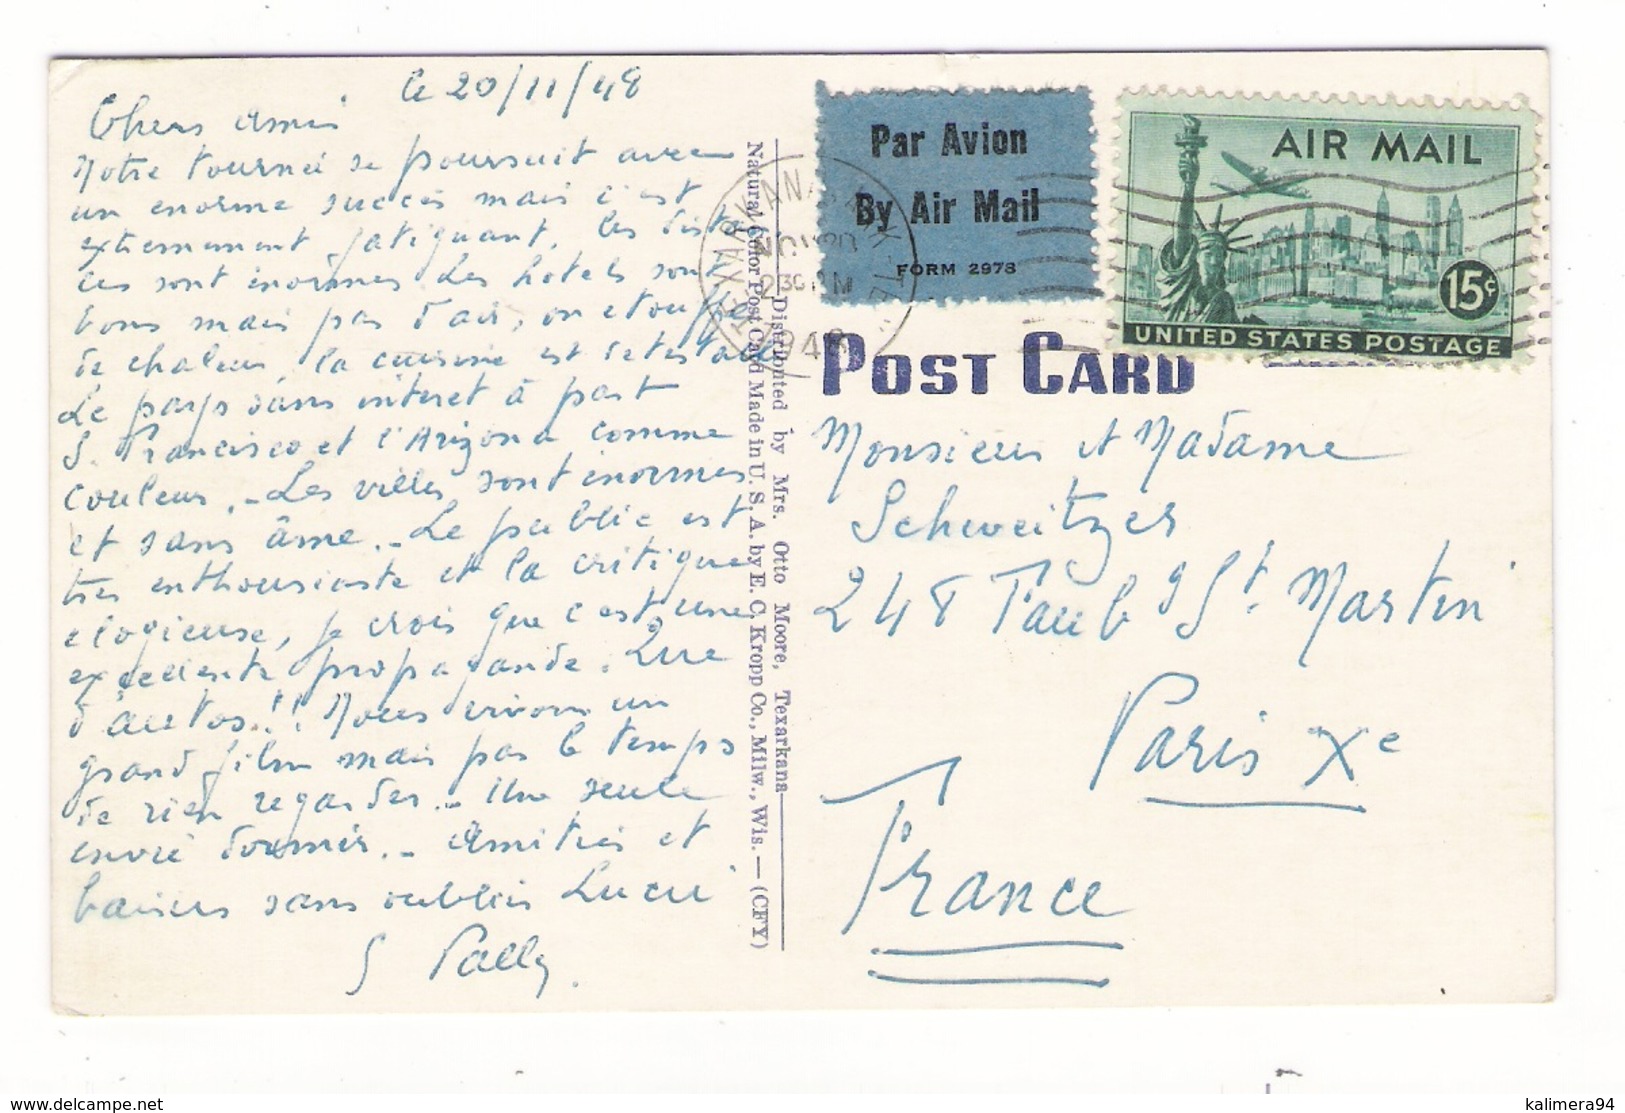 le 20/11/48
Chers Amis
Notre tournée se poursuit avec
un enorme succès mais c'est
extremement fatiguant. les distan
ces sont énormes les hotels sont
bons mais pas d'air, on etouffe
de chaleur, la cuisine est detestable
Le pays sans interet à part
S. Francisco et l'Arizona comme
couleur. - Les villes sont énormes
et sans âme. - Le public est
tres enthousiaste et la critique
elogieuse, je crois que c'est une
excellente propagande. Que
d'autos!! Nous vivons un
grand film mais pas le temps
de rien regarder. - Une seule
envie dormir. - Amitiés et
baisers sans oublier Lucie
Distributed by Mrs. Otto Moore, Texarkana
Natural Color Post Card Made in U. S. A. by E. C. Kropp Co., Milw., Wis. — (CFY)
Par Avion
By Air Mail
FORM 2978
AIR MAIL
15c
UNITED STATES POSTAGE
TEXARKANA ARK
NOV 20
230 PM
1948
POST CARD
Monsieur et Madame
Schweitzer
248 Faub g St. Martin
Paris Xe
France
kalimera94
www.delcampe.net